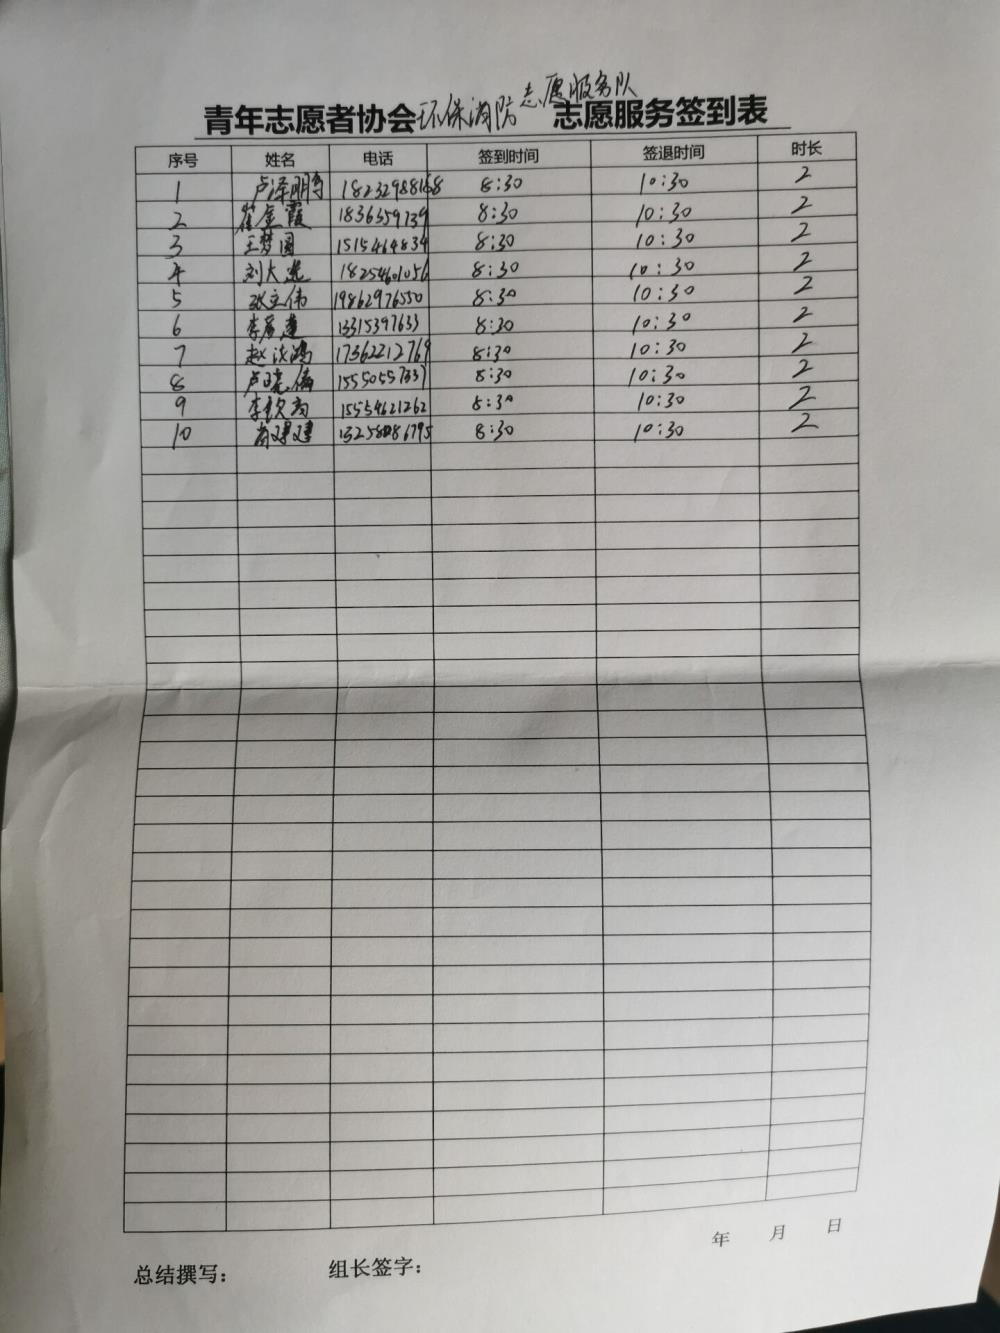 志愿服务队
青年志愿者协会环保消防志愿服务签到表
序号 姓名 电话 签到时间 签退时间 时长
1 卢泽鹏 18232988168 8:30 10:30 2
2 崔金霞 1836359739 8:30 10:30 2
3 王梦圆 1515464834 8:30 10:30 2
4 刘大 18254601056 8:30 10:30 2
5 张立伟 19862976550 8:30 10:30 2
6 李彦莲 13315397633 8:30 10:30 2
7 赵 鸿 17362212769 8:30 10:30 2
8 卢晓倩 15550557337 8:30 10:30 2
9 李钦 15554621262 8:30 10:30 2
10 建建 8:30 10:30 2
年 月 日
总结撰写： 组长签字：